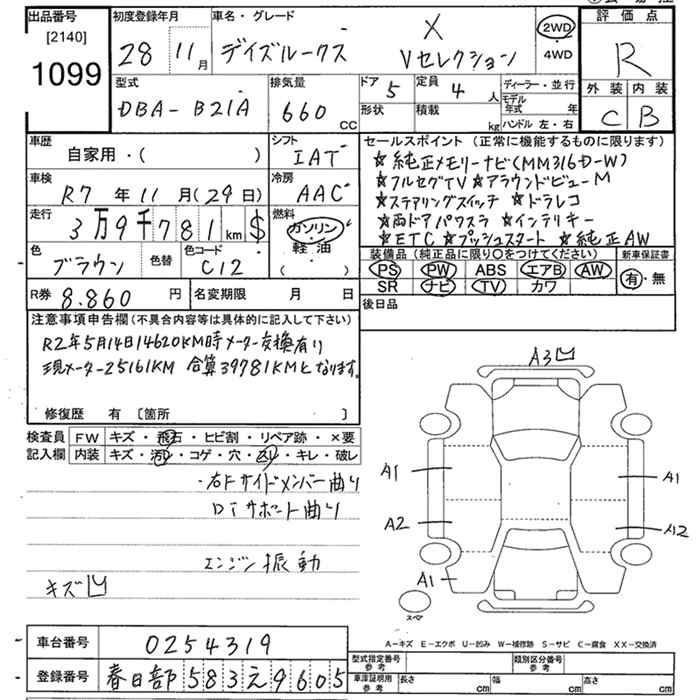 出品番号 初度登録年月 車名・グレード 評価点
[2140] 28 11月 デイズルークス X Vセレクション 2WD・4WD R
1099
型式 排気量 ドア 5 定員 4人 ディーラー・並行 外装 内装
DBA-B21A 660 CC 形状 積載 kg モデル年式 年 C B
ハンドル 左・右
車歴 シフト セールスポイント (正常に機能するものに限ります)
自家用・( ) IAT ☆純正メモリーナビ(MM316D-W)
車検 冷房 ☆フルセグTV ☆アラウンドビューM
R7年11月(29日) AAC ☆ステアリングスイッチ ☆ドラレコ
走行 燃料 ☆両ドアパワスラ ☆インテリキー
3万9千781km $ ガソリン ☆ETC ☆プッシュスタート ☆純正AW
軽油
( )
色 色替 色コード 装備品 (純正品に限り○をつけてください) 新車保証書
ブラウン C12 PS PW ABS エアB AW 有・無
SR ナビ TV カワ
R券 8.860円 名変期限 月 日 後日品
注意事項申告欄(不具合内容等は具体的に記入して下さい)
R2年5月14日14620KM時メーター交換有り
現メーター25161KM 合算39781KMとなります。
修復歴 有 [箇所 ]
検査員 FW キズ・飛石・ヒビ割・リペア跡・×要
記入欄 内装 キズ・汚レ・コゲ・穴・スレ・キレ・破レ
・右Fサイドメンバー曲り
ロアサポート曲り
エンジン振動
キズ凹
A3凹
A1 A1
A2 A2
A1
スペア
A-キズ E-エクボ U-凹み W-補修跡 S-サビ C-腐食 XX-交換済
車台番号 0254319 型式指定番号 参考 類別区分番号 参考
登録番号 春日部583え9605 車庫証明用 参考 長さ cm 幅 cm 高さ cm